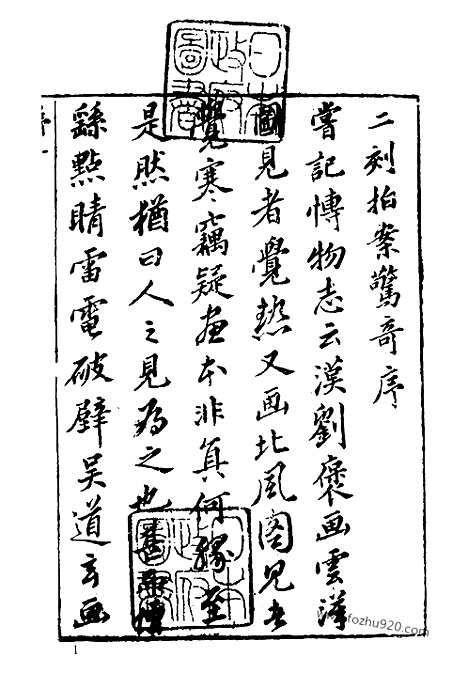 日本
政府
圖書
二刻拍案驚奇序
嘗記博物志云漢劉褒画雲漢
圖見者覺熱又画北風圖見者
覺寒竊疑画本非真何緣至
是然猶曰人之見為之也甚而僧
繇點睛雷電破壁吳道玄画
日本
政府
圖書
fozhu920.com
1